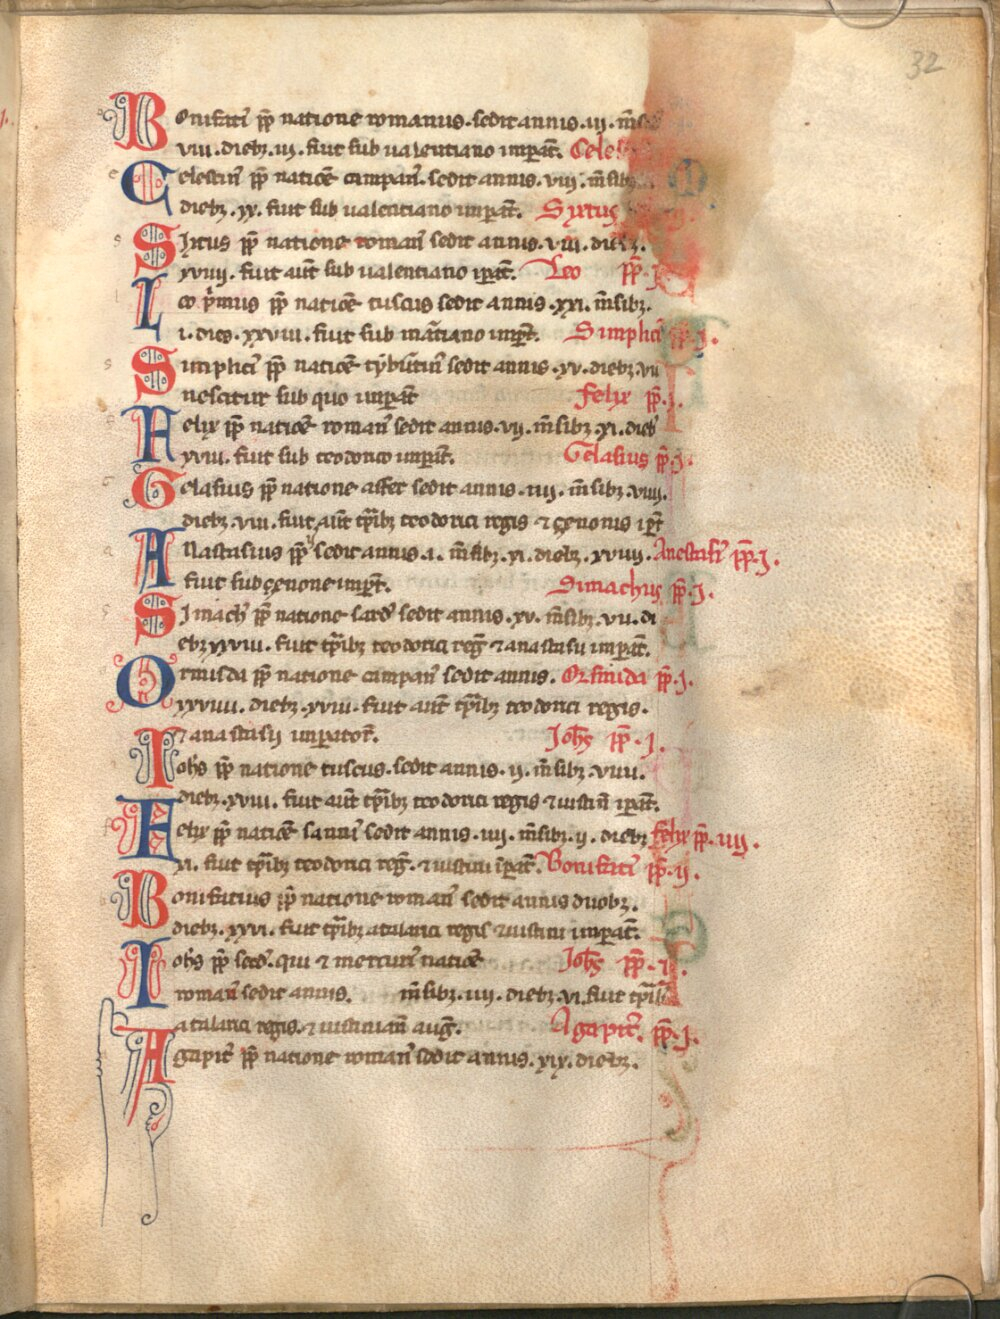 32
Bonifaci᷒ pp̄ natione romanus. sedit annis. iii. m̄sib
viii. dieb⁊. iii. fuit sub valentiano imp̄at̄. Celes
Celestin᷒ pp̄ natiōe campan᷒. sedit annis. viii. m̄sib⁊
dieb⁊. x. fuit sub valentiano imp̄at̄. Syxtus
Sixtus pp̄ natione roman᷒ sedit annis. viii. dieb⁊.
xviiii. fuit aūt sub valentiano ip̄at̄. Leo pp̄. j
Leo p̄mus pp̄ natiōe tuscus sedit annis. xxi. m̄sib⁊.
i. dieb. xxviii. fuit sub mar̄tiano imp̄t̄. Simplici᷒ pp̄. j.
Simplici᷒ pp̄ natiōe tyburtin᷒ sedit annis. xv. dieb⁊. vii
nescitur sub quo imp̄at̄ Felix pp̄. j.
Felix pp̄ natiōe roman᷒ sedit annis. vii. m̄sib⁊. xi. dieb᷒
xviii. fuit sub teodorico imp̄at̄. Gelasius pp̄. j.
Gelasius pp̄ natione affer sedit annis. iiii. m̄sib⁊. viii.
dieb⁊. viii. fuit aūt tp̄ib⁊ teodorici regis ⁊ çenonis ip̄t̄
Anastasius pp̄ sedit annis. i. m̄sib⁊. xi. dieb⁊. xviiii. Anestasi᷒ pp̄. j.
fuit sub çenone imp̄t̄. Simachus pp̄. j.
Simach᷒ pp̄ natione sard᷒ sedit annis. xv. m̄sib⁊. vii. di
eb⁊ xxviii. fuit tp̄ib⁊ teodorici reḡ ⁊ anastasii imp̄at̄.
Ormisda pp̄ natione campan᷒ sedit annis. Orsmida pp̄. j.
xxviiii. dieb⁊. xviii. fuit aūt tp̄ib⁊ teodorici regis.
⁊ anastasii imp̄ator̄. Joh̄s pp̄. j.
Ioh̄s pp̄ natione tuscus. sedit annis. ii. m̄sib⁊. viiii.
dieb⁊. xviii. fuit aūt tp̄ib⁊ teodorici regis ⁊ iustin᷒ ip̄at̄.
Felix pp̄ natiōe samni᷒ sedit annis. iiii. m̄sib⁊. ii. dieb⁊ Felix pp̄. iiii.
xi. fuit tp̄ib⁊ teodorici reḡ. ⁊ iustini ip̄at̄. Bonifaci᷒ pp̄. ii.
Bonifatius pp̄ natione roman᷒ sedit annis duob⁊.
dieb⁊. xxvi. fuit tp̄ib⁊ atalarici regis ⁊ iustini imp̄at̄.
Ioh̄s pp̄ scd᷒. qui ⁊ mercuri᷒ natiōe Joh̄s pp̄. ii.
roman᷒ sedit annis. m̄sib⁊. iiii. dieb⁊. vi. fuit tp̄ib⁊
atalarici regis. ⁊ iustinian᷒ auḡ. Agapit᷒. pp̄. j.
Agapit᷒ pp̄ natione roman᷒ sedit annis. xix. dieb⁊.